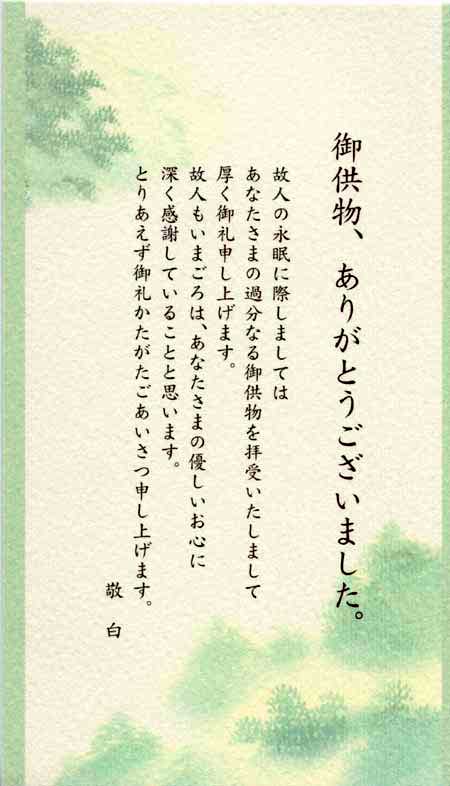 御供物、ありがとうございました。
故人の永眠に際しましては
あなたさまの過分なる御供物を拝受いたしまして
厚く御礼申し上げます。
故人もいまごろは、あなたさまの優しいお心に
深く感謝していることと思います。
とりあえず御礼かたがたごあいさつ申し上げます。
敬白